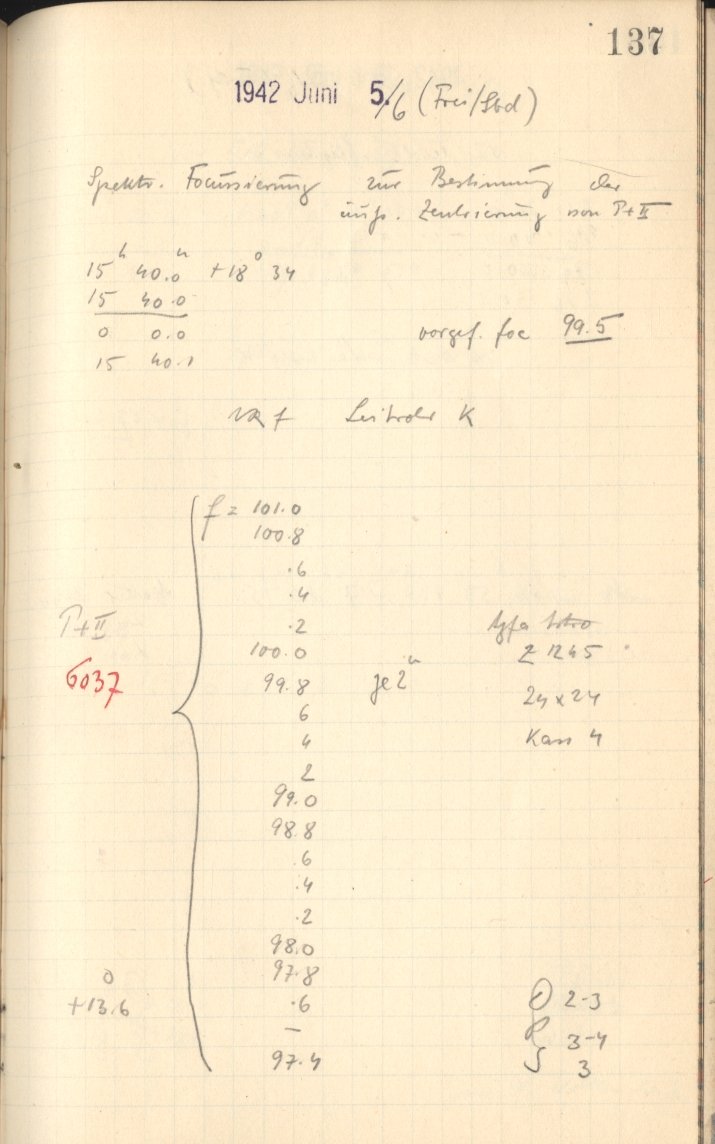 137
1942 Juni 5./6 (Frei/Sbd)
Spektr. Focussierung zur Bestimmung der
Zentrierung von P+II
15h 40.0m +18° 34
15 40.0
0 0.0
15 40.1
vorgef. foc 99.5
f Leitrohr K
f = 101.0
100.8
.6
.4
.2
P+II
Agfa Astro
100.0
Z 1245
6037
99.8
je 2m
24x24
6
4
Kass 4
2
99.0
98.8
.6
.4
.2
98.0
0
97.8
+13.6
.6
2-3
–
3-4
97.4
S 3